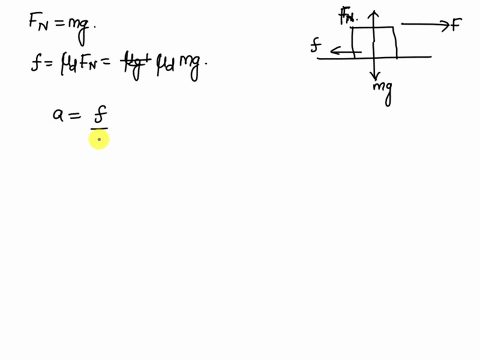 F_N = mg.
f = μ_d F_N = μ_d mg.
a = f
F_N
F
f
mg